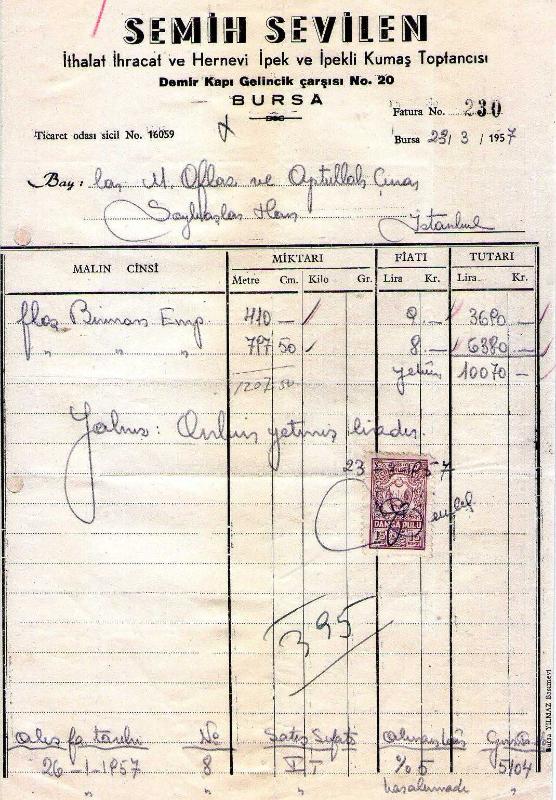 SEMİH SEVİLEN
İthalat İhracat ve Hernevi İpek ve İpekli Kumaş Toptancısı
Demir Kapı Gelincik çarşısı No. 20
BURSA
Fatura No. 230
Ticaret odası sicil No. 16059
Bursa 23/3/1957
Bay: M. Oflas ve Aptullah
Han İstanbul
MALIN CİNSİ MİKTARI FİATI TUTARI
Metre Cm. Kilo Gr. Lira Kr. Lira Kr.
Emp 410 — 9 — 3690 —
" " " 797 50 8 — 6380 —
1207 50 yekün 10070 —
Yalnız: Onbin yetmiş liradır.
23 1957
DAMGA PULU
15 15
395
Alış fa tarihi No Satış Sıfatı
26-1-1957 8 I T % 5 5104
" " "
Bursa YILMAZ Basımevi